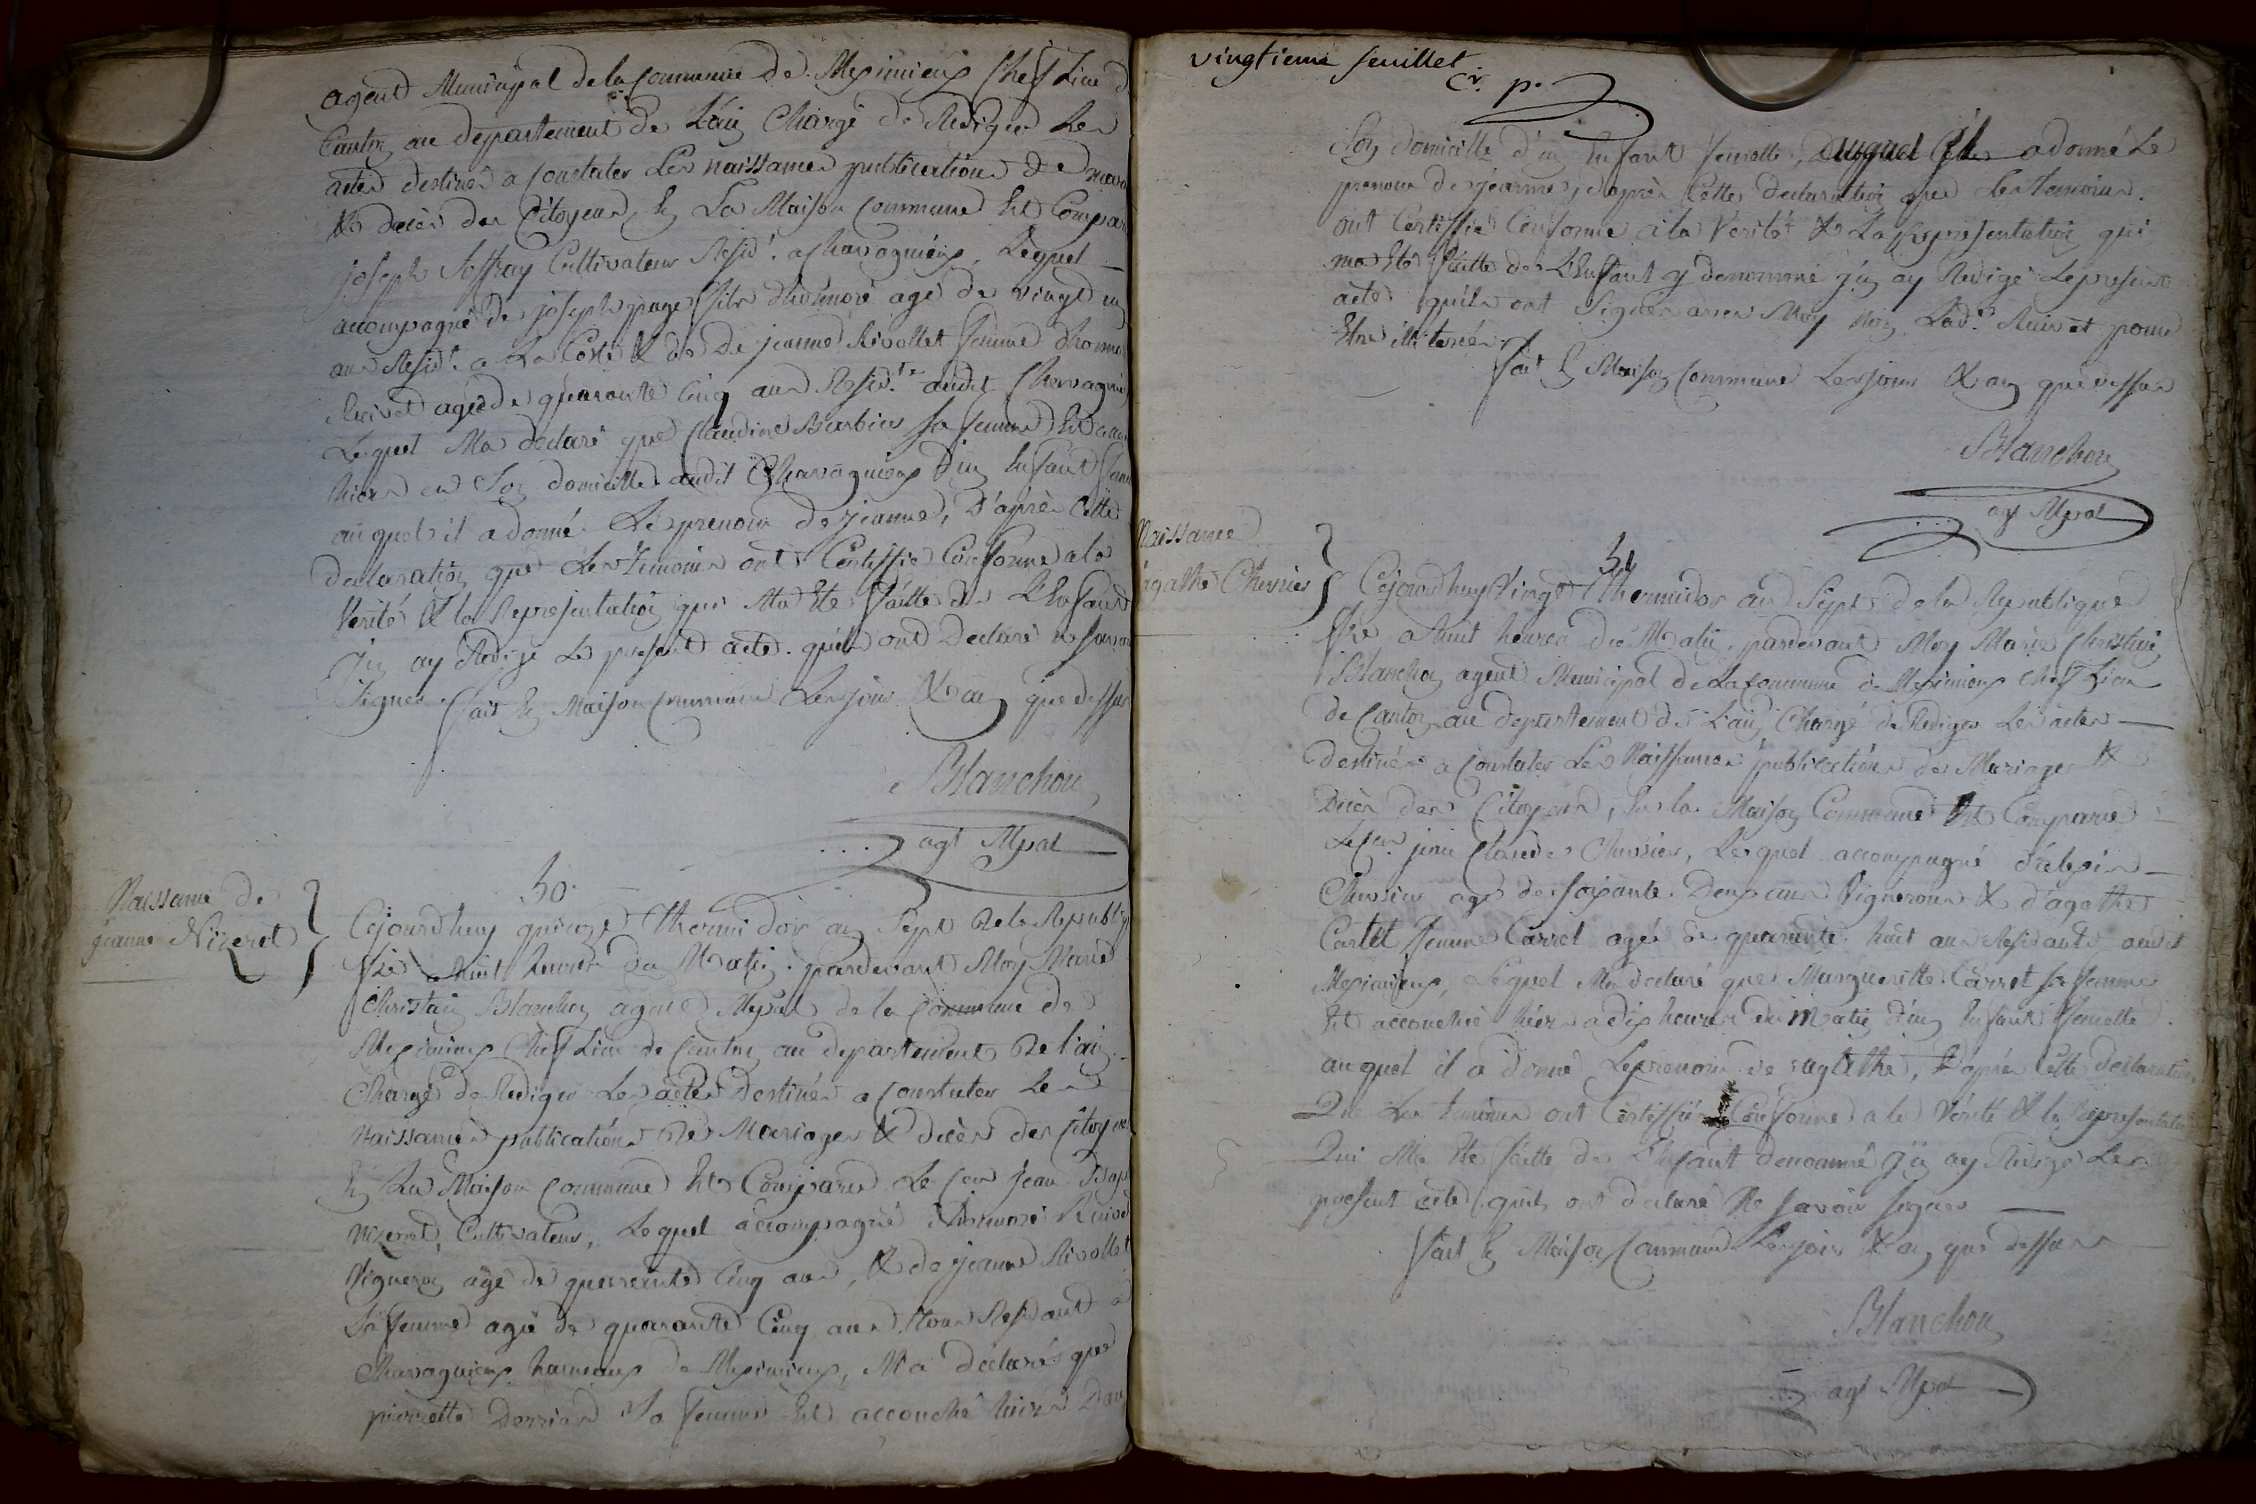 agent Municipal de la Commune de Meximieux Chef Lieu d
Canton au departement de L'ain Chargé de Rediger Les
actes destinés a Constater Les naissances publications de
& deces des Citoyens, En La Maison Commune Est Compar
joseph Joffray Cultivateur Resid.t a Chavagnieux, Lequel
accompagné de joseph page fils d'honnoré agé de vingt un
ans Resid.t a La Coste & de De jeanne Rivollet femme d'honnoré
Ruivet agée de quarante Cinq ans Resid.te audit Chavagnieux
Lequel Ma declaré que Claudine Barbier sa femme Est acc
hier en Son domicille audit Chavagnieux d'un Enfant fem
auquel il a donné Le prenom de jeanne, D'après Cette
declaration que Les temoins ont Certiffié Conforme a la
Verité & la Representation qui Ma Eté faitte de L'Enfant
J'en ay Redigé Le present acte qu'ils ont Declaré ne savoir
Signer. fait En Maison Commune Les jour & an que dessus
Blanchon
agt Mpal
Naissance de
jeanne Nizeret
50.
Cejourdhuy quinze Thermidor an Sept de la Republiq
à huit heures du Matin, pardevant Moy Marie
Christain Blanchon agent Mpal de la Commune de
Meximieux Chef Lieu de Canton au departement de l'ain
Chargé de Rediger Les actes Destinés a Constater Les
Naissances publications de Mariages & deces des Citoyens
En La Maison Commune Est Comparu Le Cen jean Bap
Nizeret, Cultivateur, Lequel accompagné d'honnoré Ruivet
Vigneron agé de quarante Cinq ans, & de jeanne Rivollet
Sa femme agée de quarante Cinq ans tous Residants a
Chavagnieux hameaux de Meximieux, M'a déclaré que
pierrette Derrias Sa femme Est accouché hier Dans
vingtieme feuillet
Cr. p.
Son domicille d'un Enfant femelle, auquel il a donné Le
prenom de jeanne, d'après Cette declaration que Les temoins
ont Certiffié Conforme à la Verité & La Representation qui
ma Eté faitte de L'Enfant y denommé j'en ay Redigé Le present
acte qu'ils ont Signés avec Moy Non Lad.te Ruivet pour
Etre illiterée
fait En Maison Commune Les jour & an que dessus
Blanchon
agt Mpal
Naissance
agathe Chessier
51
Cejourdhuy Vingt Thermidor an Sept de la Republique
a huit heures du Matin, pardevant Moy Marie Christain
Blanchon agent Municipal de La Commune de Meximieux Chef Lieu
de Canton au departement de L'ain, Chargé de Rediger Les actes
destinés a Constater Les Naissances publications de Mariages &
Deces des Citoyens, En la Maison Commune Est Comparu
Le Cen jean Claude Chessier, Lequel accompagné d'alexis
Chessier agé de soixante Deux ans Vigneron & d'agathe
Cartet femme Carret agée de quarante huit ans Residants audit
Meximieux, Lequel Ma declaré que Marguerite Carret sa femme
Est accouchée hier a dix heures du Matin d'un Enfant femelle
auquel il a donné Le prenom de agathe, D'après Cette declaration
Que Les temoins ont Certiffié Conforme a la Verité & la Representation
Qui Ma Eté faitte de L'Enfant denommé J'en ay Redigé Le
present acte qu'ils ont declaré Ne savoir signer
fait En Maison Commune Les jour & an que dessus
Blanchon
agt Mpal